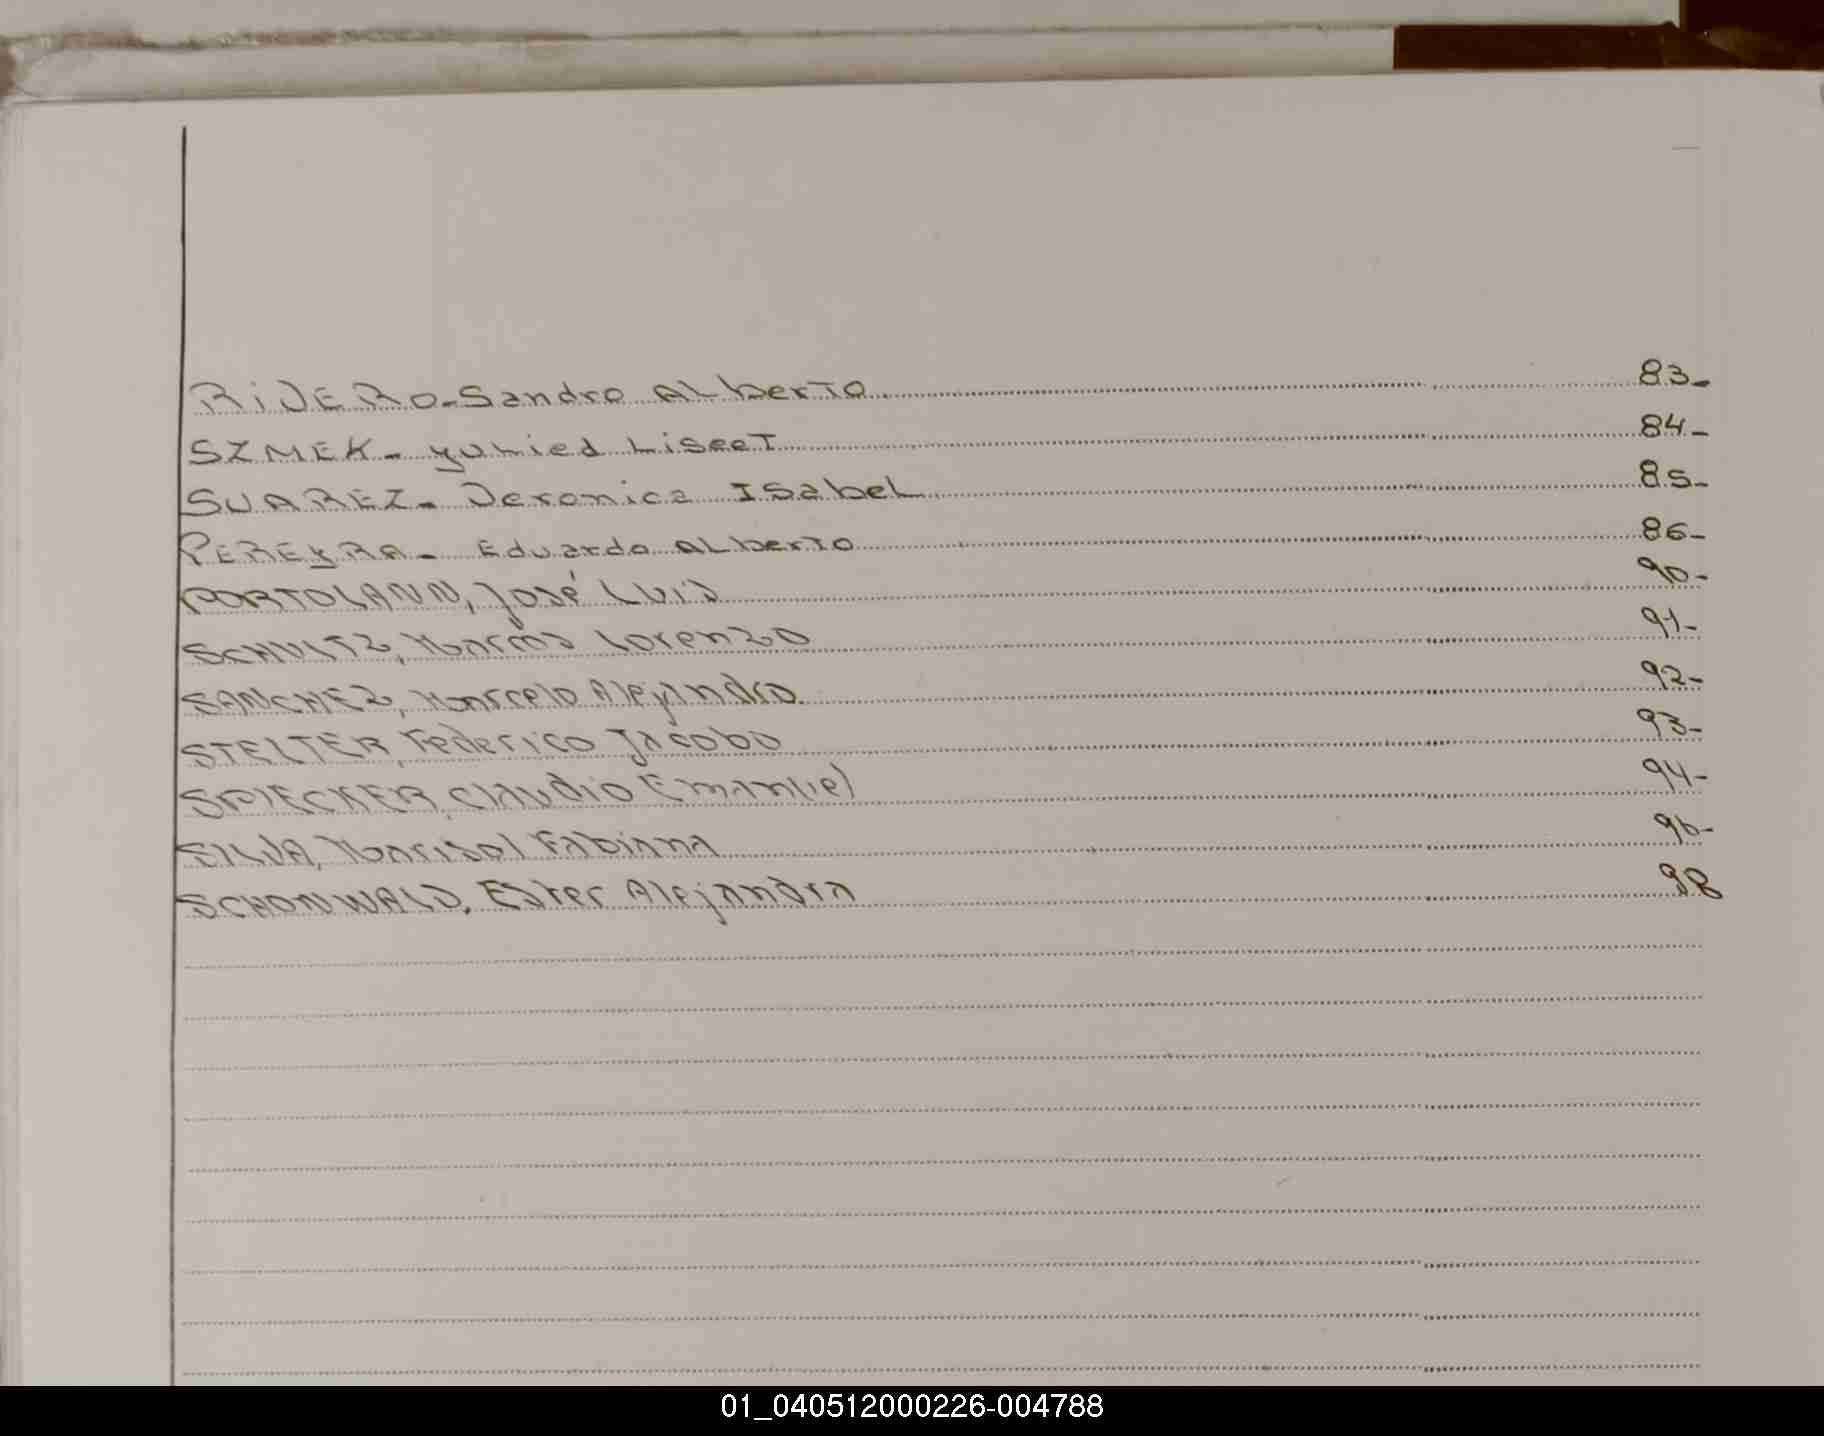 RIVERO - Sandro Alberto 83-
SZMEK - yulied Liseet 84-
SUAREZ - Veronica Isabel 85-
PEREYRA - Eduardo Alberto 86-
PORTOLANN, José Luis 90-
SCHULTZ, Marcos Lorenzo 91-
SANCHEZ, Marcelo Alejandro 92-
STELTER, Federico Jacobo 93-
SPIECKER, Claudio Emanuel 94-
SILVA, Marisol Fabiana 96-
SCHONWALD, Ester Alejandra 98
01_040512000226-004788